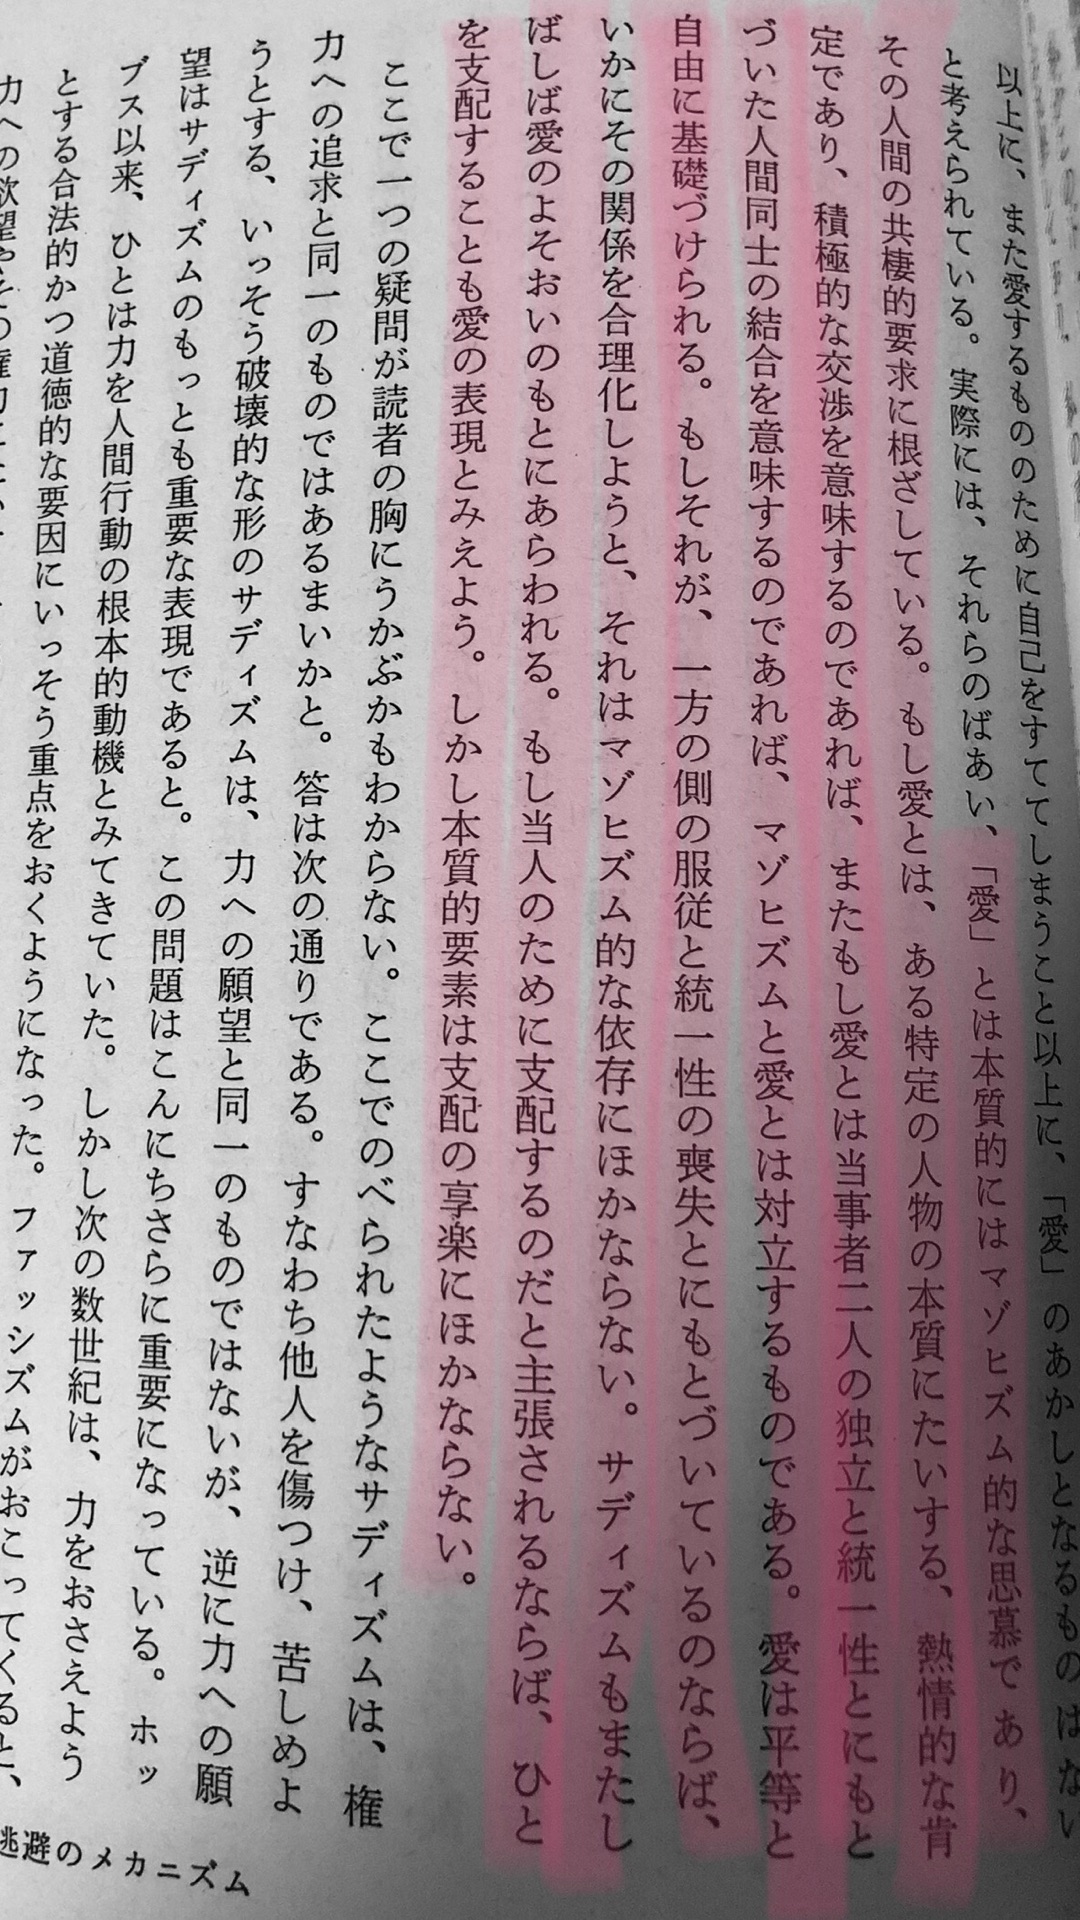 以上に、また愛するもののために自己をすててしまうこと以上に、「愛」のあかしとなるものはない
と考えられている。実際には、それらのばあい、「愛」とは本質的にはマゾヒズム的な思慕であり、
その人間の共棲的要求に根ざしている。もし愛とは、ある特定の人物の本質にたいする、熱情的な肯
定であり、積極的な交渉を意味するのであれば、またもし愛とは当事者二人の独立と統一性とにもと
づいた人間同士の結合を意味するのであれば、マゾヒズムと愛とは対立するものである。愛は平等と
自由に基礎づけられる。もしそれが、一方の側の服従と統一性の喪失とにもとづいているのならば、
いかにその関係を合理化しようと、それはマゾヒズム的な依存にほかならない。サディズムもまたし
ばしば愛のよそおいのもとにあらわれる。もし当人のために支配するのだと主張されるならば、ひと
を支配することも愛の表現とみえよう。しかし本質的要素は支配の享楽にほかならない。
ここで一つの疑問が読者の胸にうかぶかもわからない。ここでのべられたようなサディズムは、権
力への追求と同一のものではあるまいかと。答は次の通りである。すなわち他人を傷つけ、苦しめよ
うとする、いっそう破壊的な形のサディズムは、力への願望と同一のものではないが、逆に力への願
望はサディズムのもっとも重要な表現であると。この問題はこんにちさらに重要になっている。ホッ
ブス以来、ひとは力を人間行動の根本的動機とみてきていた。しかし次の数世紀は、力をおさえよう
とする合法的かつ道徳的な要因にいっそう重点をおくようになった。ファッシズムがおこってくると、
力への欲望や
逃避のメカニズム